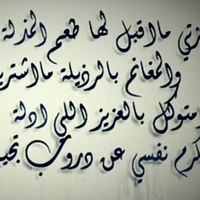 زتي مااقبل لها طعم المذلة
والمغانم بالرذيلة مااشتري
متوكل بالعزيز اللي ادلة
كرم نفسي عن دروب تجي